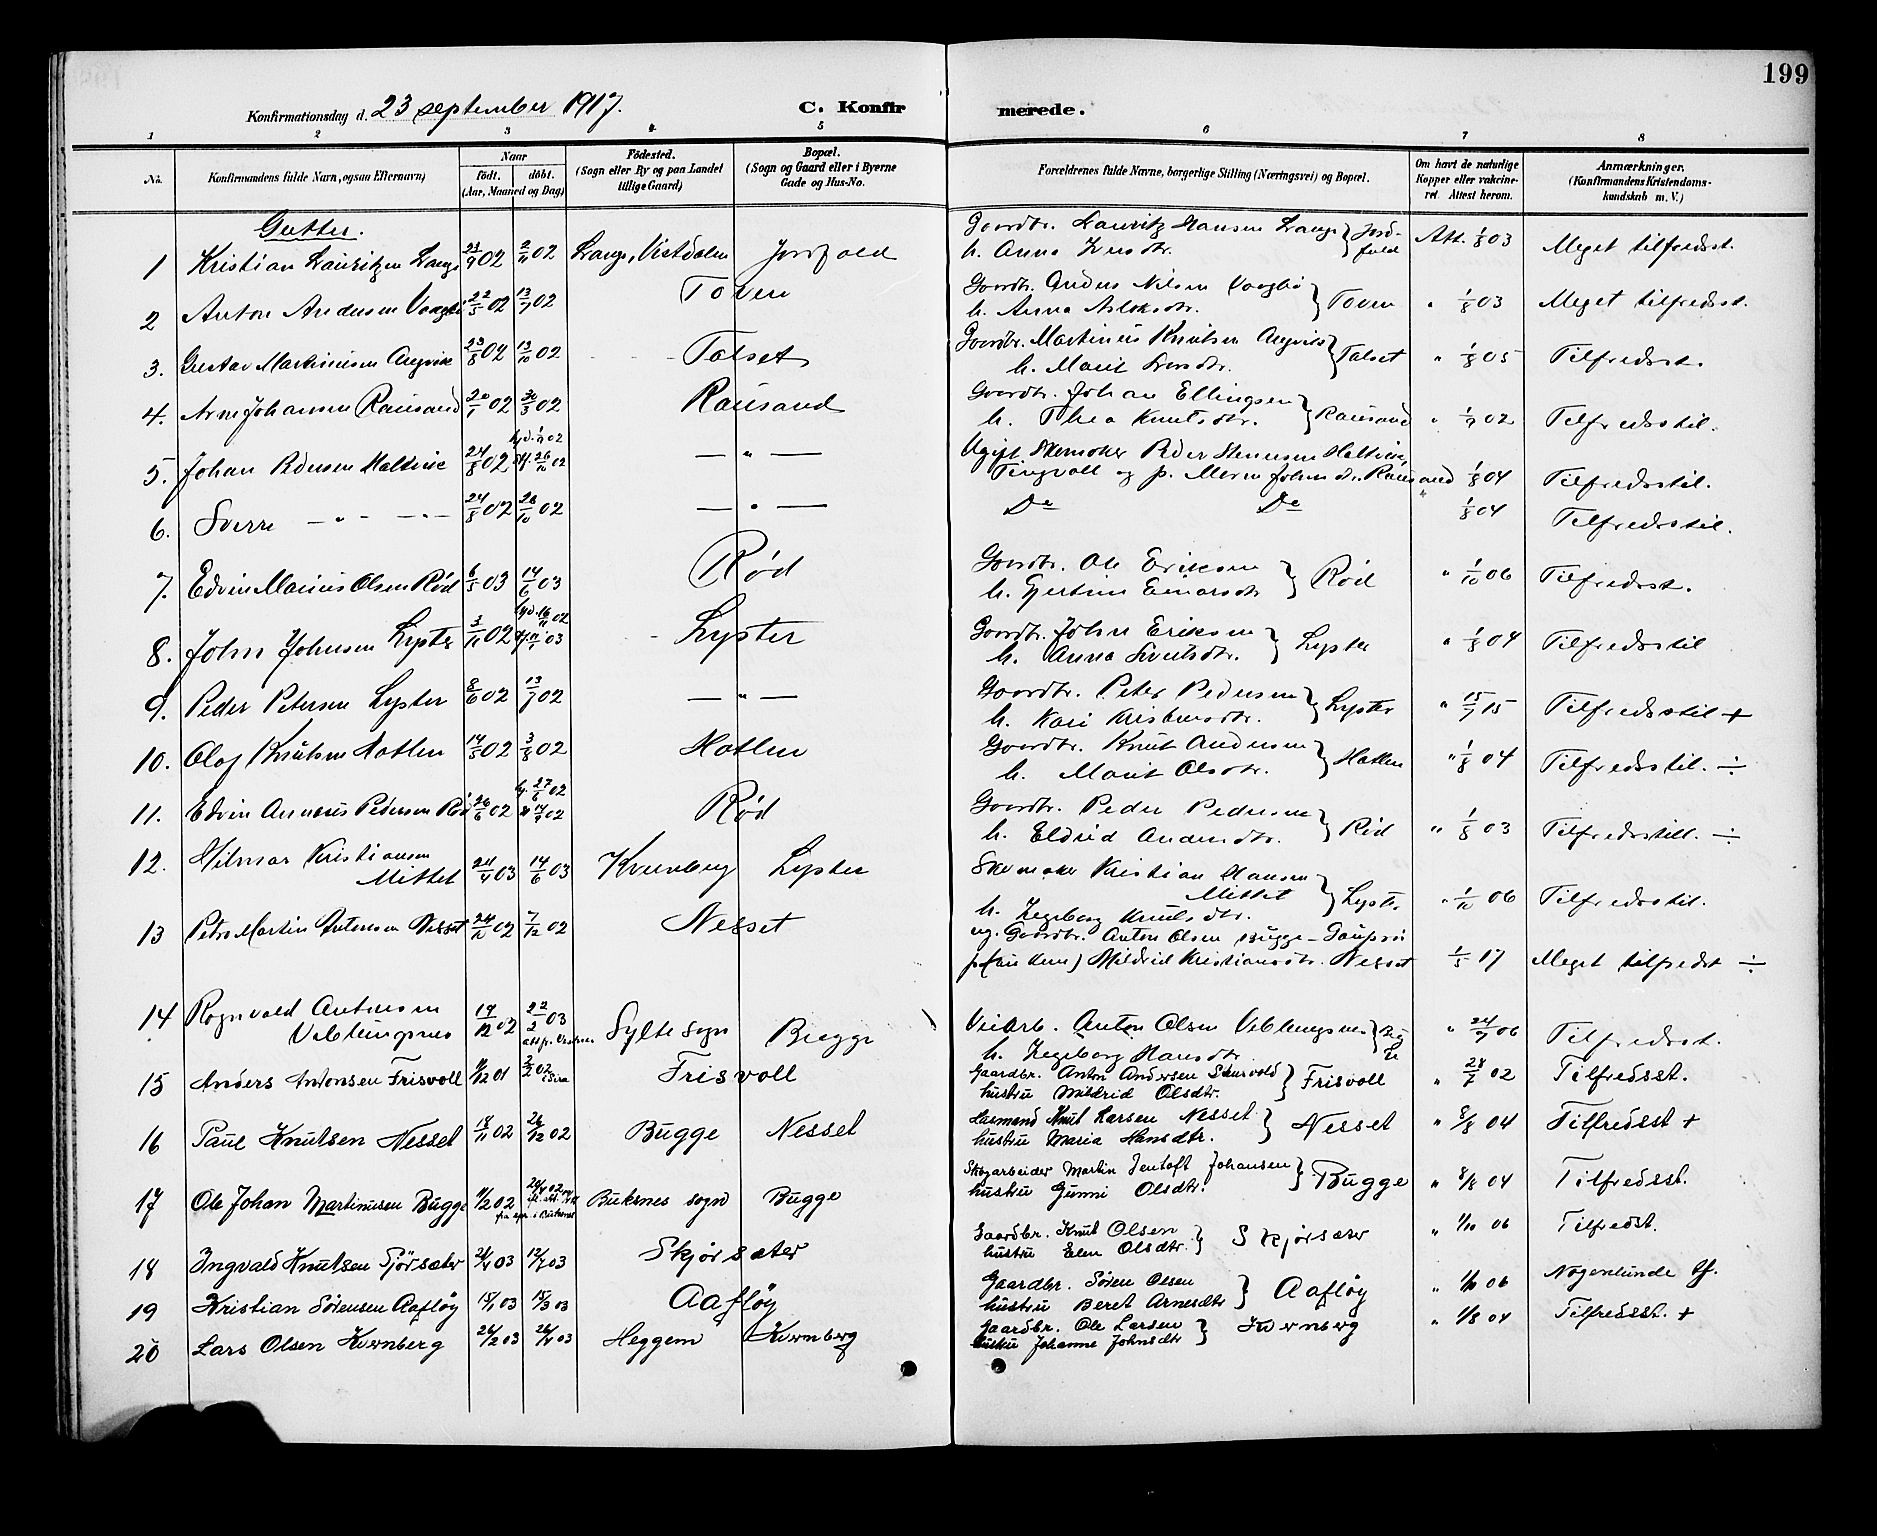 199
Konfirmationsdag d. 23 september 1917.
C. Konfirmerede.
1 2 3 4 5 6 7 8
No. Konfirmandens fulde Navn, ogsaa Efternavn) Naar födt. döbt. (Aar, Maaned og Dag) Födested. (Sogn eller By og paa Landet tillige Gaard) Bopæl. (Sogn og Gaard eller i Byerne Gade og Hus-No. Forældrenes fulde Navne, borgerlige Stilling (Næringsvei) og Bopæl. Om havt de naturlige Kopper eller vakcineret. Attest herom. Anmærkninger. (Konfirmandens Kristendomskundskab m. V.)
Gutter.
1 Kristian Lauritzen Lange 23/9 02 2/11 02 Lange, Vistdalen Jordfald Gaardbr. Lauritz Hansen Lange h. Anna } Jordfald Att. 1/8 03 Meget tilfredsst.
2 Anton Andersen Vaagbø 22/5 02 13/7 02 Toven Gaardbr. Anders Nilsen Vaagbø h. Anna } Toven " 1/8 03 Meget tilfredsst.
3. Gustav Martinusen Angvik 23/8 02 13/10 02 Talset Gaardbr. Martinus Knutsen Angvik h. Marit } Talset " 1/8 05 Tilfredsst.
4. Arne Johansen Rausand 20/1 02 30/3 02 Rausand Gaardbr. Johan Ellingsen h. Thea Knutsdtr. } Rausand " 1/9 02 Tilfredsstil.
5. Johan Pedersen 24/8 02 26/10 02 — " — Ugift Skomaker Peder Tingvoll og p. Rausand 1/8 04 Tilfredsstil.
6. Sverre — " — — " — 24/8 02 26/10 02 — " — Do Do " 1/8 04 Tilfredsstil.
7. Edvin Marius Olsen Rød 6/5 03 14/6 03 Rød Gaardbr. Ole Eriksen h. Gjertine Einarsdtr } Rød " 1/10 06 Tilfredsst.
8. John Johnsen Lyster 3/11 02 Lyster Gaardbr. John Eriksen h. Anna } Lyster " 1/8 04 Tilfredsstil
9. Peder Petersen Lyster 8/6 02 13/7 02 — " — Gaardbr. Peter Pedersen h. Kari } Lyster " 15/7 15 Tilfredsstil +
10. Olaf Knutsen Hatlen 14/5 02 3/8 02 Hatlen Gaardbr. Knut Andersen h. Marit Olsdtr. } Hatlen " 1/8 04 Tilfredsstil. ÷
11. Edvin Annæus Pedersen Rød 26/6 02 27/6 02 14/9 02 Rød Gaardbr. Peder Pedersen h. Eldrid Andersdtr. } Rød " 1/8 03 Tilfredsstill. ÷
12. Hilmar Kristiansen Mittet 24/4 03 14/6 03 Kvernberg Lyster Skomaker Kristian Hansen Mittet h. Ingeborg Knutsdtr. } Lyster " 06 Tilfredsstil.
13 Petro Martin Antonsen Nesset 02 7/12 02 Nesset ug. Gaardbr. Anton Olsen Bugge - p. Mildrid Kristiansdtr. Nesset 1/5 17 Meget tilfredst ÷
14 Rognvald Antonsen Veblungsnes 19/12 02 22/2 03 Sylte sogn Bugge Veiarb. Anton Olsen Veblungsnes h. Ingeborg Hansdtr. } Bugge " 24/7 06 Tilfredsst.
15 Anders Antonsen Frisvoll 11/12 01 2/2 02 i Sira Frisvoll Gaardbr. Anton Andersen hustru Mildrid Olsdtr. } Frisvoll " 28/7 02 Tilfredsst.
16 Paul Knutsen Nesset 18/11 02 26/12 02 Bugge Nesset Laxmand Knut Larsen Nesset hustru Maria Hansdtr. } Nesset " 8/8 04 Tilfredsst +
17 Ole Johan Martinusen Bugge 11/2 02 Buksnes sogn Bugge Skogarbeider Martin Jentoft Johansen hustru Gunni Olsdtr. } Bugge " 8/8 04 Tilfredsst.
18 Ingvald Knutsen Sjörsæter 21/4 03 12/7 03 Skjørsæter Gaardbr. Knut Olsen hustru Elen Olsdtr. } Skjørsæter " 1/10 06 Tilfredst.
19 Kristian Sörensen Aaflöy 15/1 03 15/3 03 Aaflöy Gaardbr. Sören Olsen hustru Beret Arnesdtr } Aaflöy " 1/10 06 Nogenlunde tf.
20 Lars Olsen Kvernberg 26/2 03 26/4 03 Heggem Kvernberg Gaardbr. Ole Larsen hustru Johanne Johnsdtr } Kvernberg " 1/8 04 Tilfredsst. +